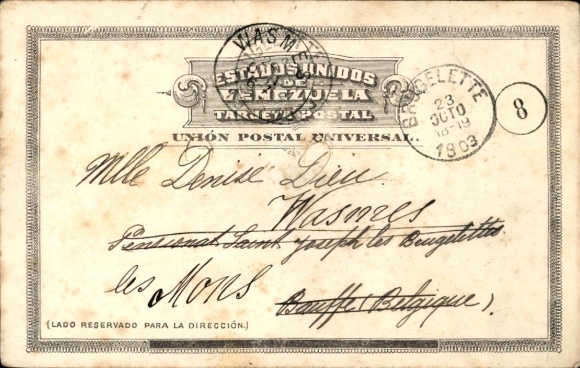 ESTADOS UNIDOS
DE
VENEZUELA
TARJETA POSTAL
UNIÓN POSTAL UNIVERSAL.
WASMES
BRUGELETTE
23
OCTO
18-19
1903
8
Mlle Denise Dieu
Wasmes
Pensionat Saint Joseph les Brugelette
les Mons
Bauffe (Belgique).
(LADO RESERVADO PARA LA DIRECCIÓN.)